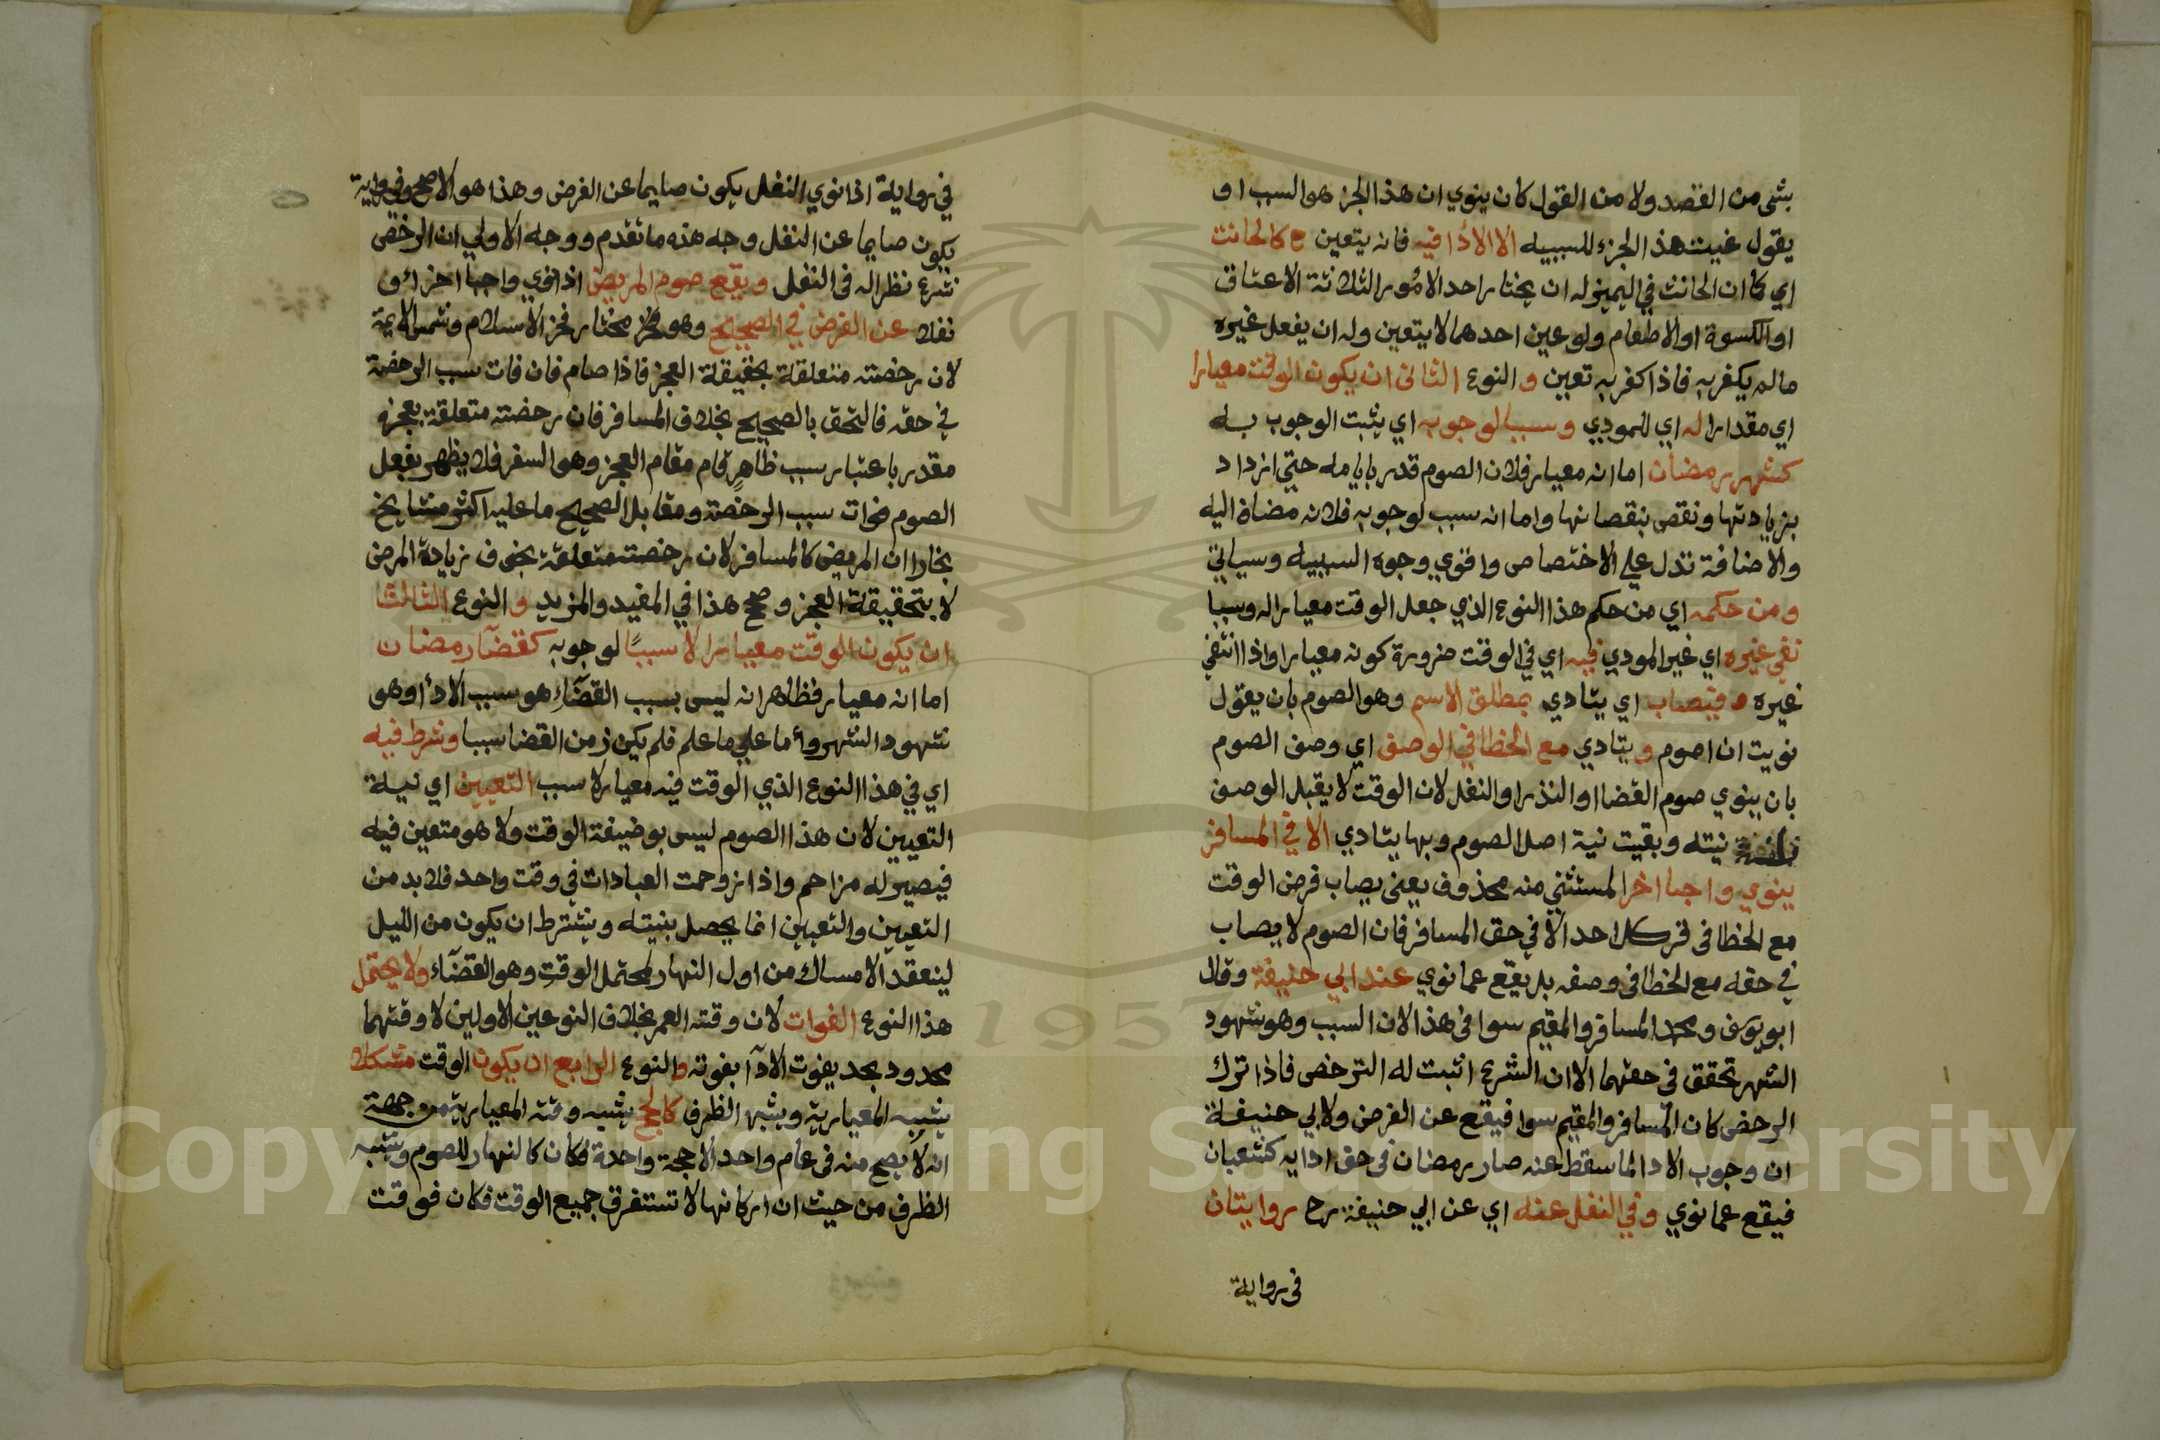 بشى من القصد ولا من القول كان ينوي ان هذا الجزء هو السبب او
يقول عينت هذا الجزء للسببيه الا الادا فيه فانه يتعين ح كالحانث
اي كما ان الحانث في اليمين له ان يختار احد الامور الثلاثة الاعتاق
او الكسوة او الاطعام ولو عين احدهما لا يتعين وله ان يفعل غيره
مالم يكفر به فاذا كفر به تعين و النوع الثانى ان يكون الوقت معيارا
اي مقدارا له اي للمودي وسببا لوجوبه اي يثبت الوجوب به
كشهر رمضان اما انه معيار فلان الصوم قدر بايامه حتي ازداد
بزيادتها ونقص بنقصانها واما انه سبب لوجوبه فلانه مضاف اليه
والاضافة تدل علي الاختصاص واقوي وجوه السببيه وسياتي
ومن حكمه اي من حكم هذا النوع الذي جعل الوقت معيارا له وسببا
نفي غيره اي غير المودي فيه اي في الوقت ضرورة كونه معيارا واذا انتفي
غيره فيصاب اي يتادي بمطلق الاسم وهو الصوم بان يقول
نويت ان اصوم ويتادي مع الخطا في الوصف اي وصف الصوم
بان ينوي صوم القضا او النذر او النفل لان الوقت لا يقبل الوصف
نيته وبقيت نية اصل الصوم وبها يتادي الا في المسافر
ينوي واجبا اخر المستثني منه محذوف يعنى يصاب فرض الوقت
مع الخطا فى حق كل احد الا في حق المسافر فان الصوم لا يصاب
في حقه مع الخطا فى وصفه بل يقع عما نوي عند ابي حنيفة وقال
ابو يوسف ومحمد المسافر والمقيم سوا فى هذا لان السبب وهو شهود
الشهر تحقق فى حقهما الا ان الشرع اثبت له الترخص فاذا ترك
الرخص كان المسافر والمقيم سوا فيقع عن الفرض ولابي حنيفة
ان وجوب الادا لما سقط عنه صار رمضان فى حق ادايه كشعبان
فيقع عما نوي وفي النفل عنه اي عن ابي حنيفة رح روايتان
فى رواية
في رواية اذا نوي النفل يكون صايما عن الفرض وهذا هو الاصح وفي رواية
يكون صايما عن النفل وجه هذه ما تقدم ووجه الاولي ان الرخص
شرع نظرا له فى النفل ويقع صوم المريض اذا نوي واجبا اخر او
نفلا عن الفرض في الصحيح وهو مختار فخر الاسلام وشمس الايمة
لان رخصته متعلقة بحقيقة العجز فاذا صام فان فات سبب الرخصة
في حقه فالتحق بالصحيح بخلاف المسافر فان رخصته متعلقة بعجز
مقدر باعتبار سبب ظاهر قام مقام العجز وهو السفر فلا يظهر بفعل
الصوم فوات سبب الرخصة ومقابل الصحيح ما عليه اكثر مشايخ
بخارا ان المريض كالمسافر لان رخصته متعلقة بخوف زيادة المرض
لا بتحقيقة العجز وصح هذا في المفيد والمزيد و النوع الثالث
ان يكون الوقت معيارا لا سببا لوجوبه كقضآء رمضان
اما انه معيار فظاهر انه ليس بسبب القضآء هو سبب الادا وهو
شهود الشهر واما علي ما علم فلم يكن زمن القضا سببا وشرط فيه
اي في هذا النوع الذي الوقت فيه معيار لا سبب التعيين اي نية
التعيين لان هذا الصوم ليس بوضيفة الوقت ولا هو متعين فيه
فيصير له مزاحم واذا ازدحمت العبادات في وقت واحد فلابد من
التعيين والتعيين انما يحصل بنيته ويشترط ان يكون من الليل
لينعقد الامساك من اول النهار لمحتمل الوقت وهو القضآء ولا يحتمل
هذا النوع الفوات لان وقته العمر بخلاف النوعين الاولين لا وقتهما
محدود بحد يفوت الادآ بفوته والنوع الرابع ان يكون الوقت مشكلا
يشبه المعيارية ويشبه الظرف كالحج يشبه وقته المعيارية من جهة
انه لا يصح منه فى عام واحد الا حجة واحدة فكان كالنهار للصوم ويشبه
الظرف من حيث ان اركانها لا تستغرق جميع الوقت فكان فوقت
Copyright © King Saud University
1957